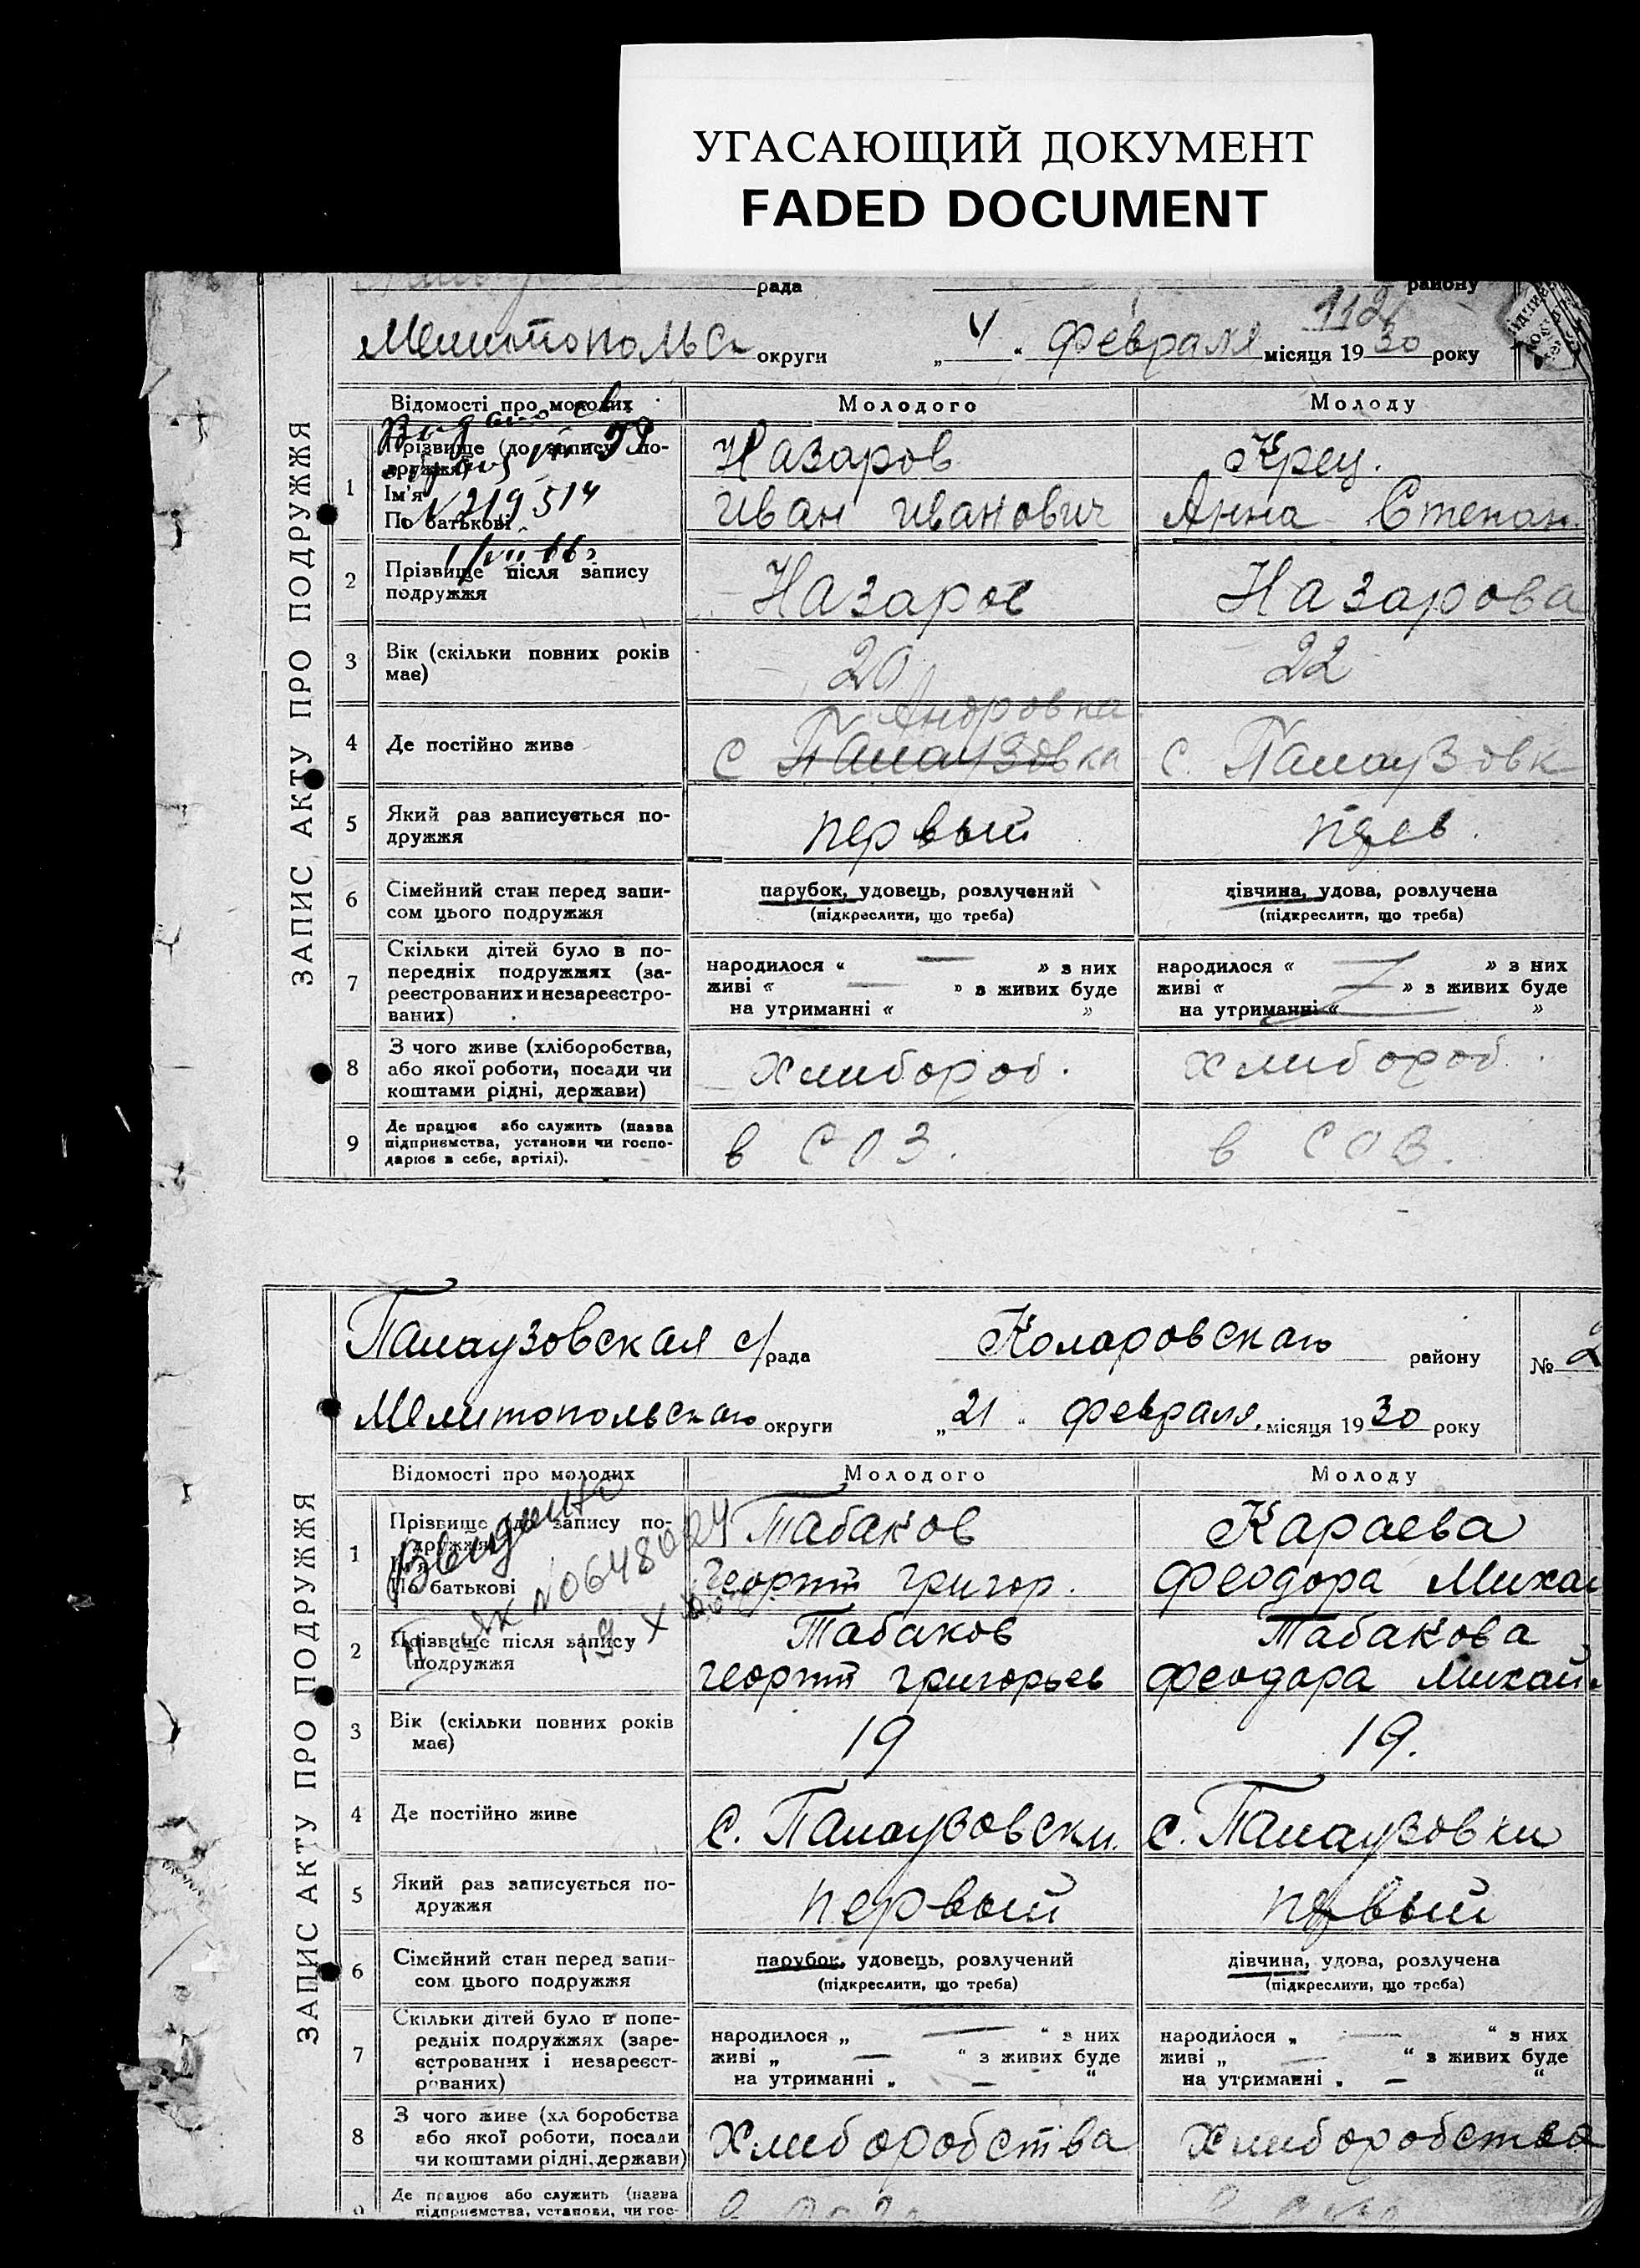 УГАСАЮЩИЙ ДОКУМЕНТ
FADED DOCUMENT
рада району
112
Мелитопольс округи „4“ Февраля місяця 1930 року
ЗАПИС АКТУ ПРО ПОДРУЖЖЯ
Відомості про молодих Молодого Молоду
1 Прізвище (до запису подружжя) Назаров Крец.
Ім'я
По батькові Иван Иванович Анна Степан.
N 219514
2 Прізвище після запису Назаров Назарова
подружжя
3 Вік (скільки повних років 20 22
має)
Андровка
4 Де постійно живе С Палаузовка С. Палаузовк
5 Який раз записується по- первый перв.
дружжя
6 Сімейний стан перед запи- парубок, удовець, розлучений дівчина, удова, розлучена
сом цього подружжя (підкреслити, що треба) (підкреслити, що треба)
7 Скільки дітей було в по-
передніх подружжях (за- народилося « — » з них народилося « — » з них
реєстрованих и незареєстро- живі « — » з живих буде живі « — » з живих буде
ваних) на утриманні « » на утриманні « »
8 З чого живе (хліборобства,
або якої роботи, посади чи Хлибороб. Хлибороб.
коштами рідні, держави)
9 Де працює або служить (назва
підприємства, установи чи госпо- в СОЗ. в СОЗ.
дарює в себе, артілі).
Палаузовская с/рада Коларовского району № 2
Мелитопольского округи „21“ февраля місяця 1930 року
ЗАПИС АКТУ ПРО ПОДРУЖЖЯ
Відомості про молодих Молодого Молоду
Выдано
1 Прізвище до запису по- Табаков Караева
дружжя
По батькові Георгий Григор. Феодора Михай
2 Прізвище після запису Табаков Табакова
подружжя Георгий Григорьев Феодора Михай
3 Вік (скільки повних років 19 19.
має)
4 Де постійно живе с. Палаузовски. с. Палаузовки
5 Який раз записується по- первый первый
дружжя
6 Сімейний стан перед запи- парубок, удовець, розлучений дівчина, удова, розлучена
сом цього подружжя (підкреслити, що треба) (підкреслити, що треба)
7 Скільки дітей було в попе-
редніх подружжях (заре- народилося „ — “ з них народилося „ — “ з них
єстрованих і незареєст- живі „ — “ з живих буде живі „ — “ з живих буде
рованих) на утриманні „ — “ на утриманні „ — “
8 З чого живе (хліборобства
або якої роботи, посади Хлиборобства Хлиборобства
чи коштами рідні, держави)
Де працює або служить (назва
підприємства, установи, чи гос-